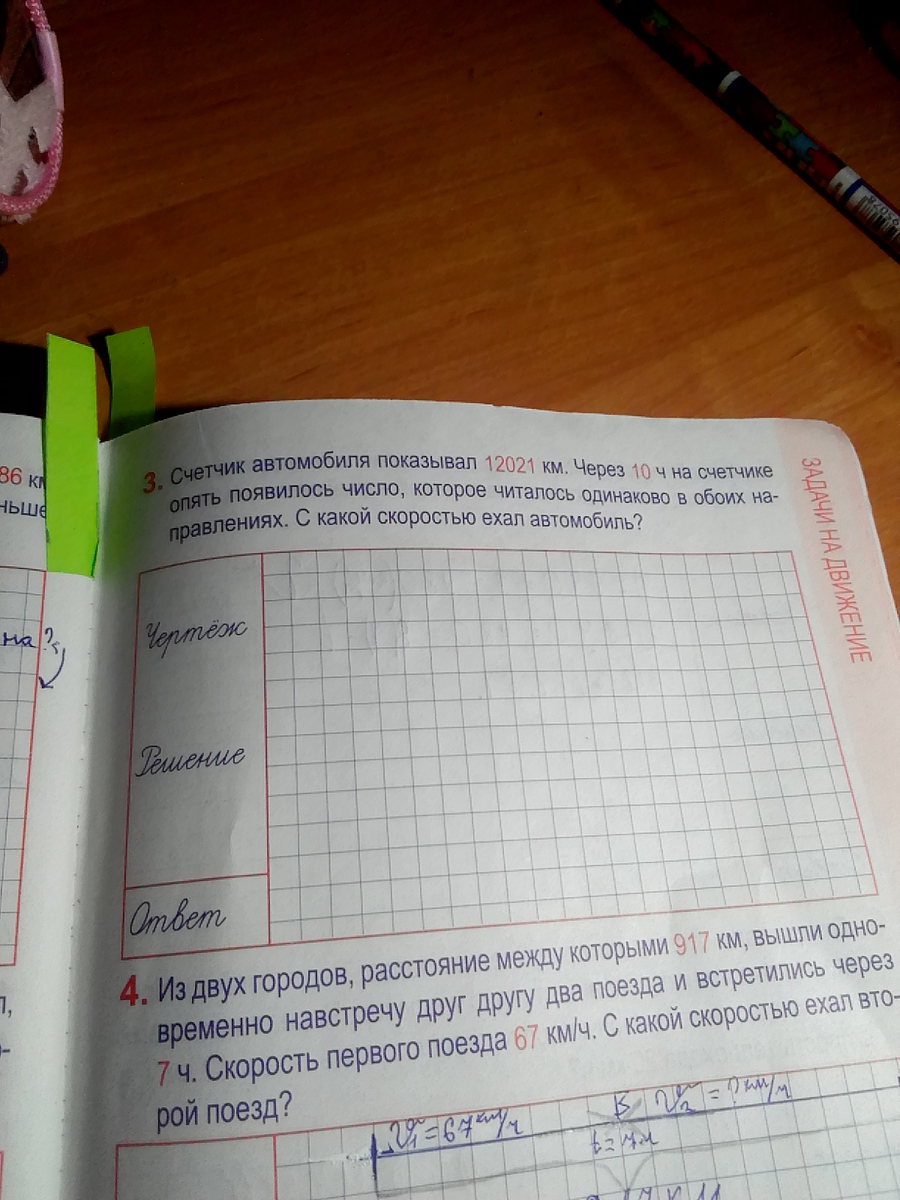 86 км
ньше
на ?
3. Счетчик автомобиля показывал 12021 км. Через 10 ч на счетчике
опять появилось число, которое читалось одинаково в обоих на-
правлениях. С какой скоростью ехал автомобиль?
ЗАДАЧИ НА ДВИЖЕНИЕ
Чертёж
Решение
Ответ
4. Из двух городов, расстояние между которыми 917 км, вышли одно-
временно навстречу друг другу два поезда и встретились через
7 ч. Скорость первого поезда 67 км/ч. С какой скоростью ехал вто-
рой поезд?
V₁ = 67 км/ч
V₂ = ? км/ч
t = 7ч